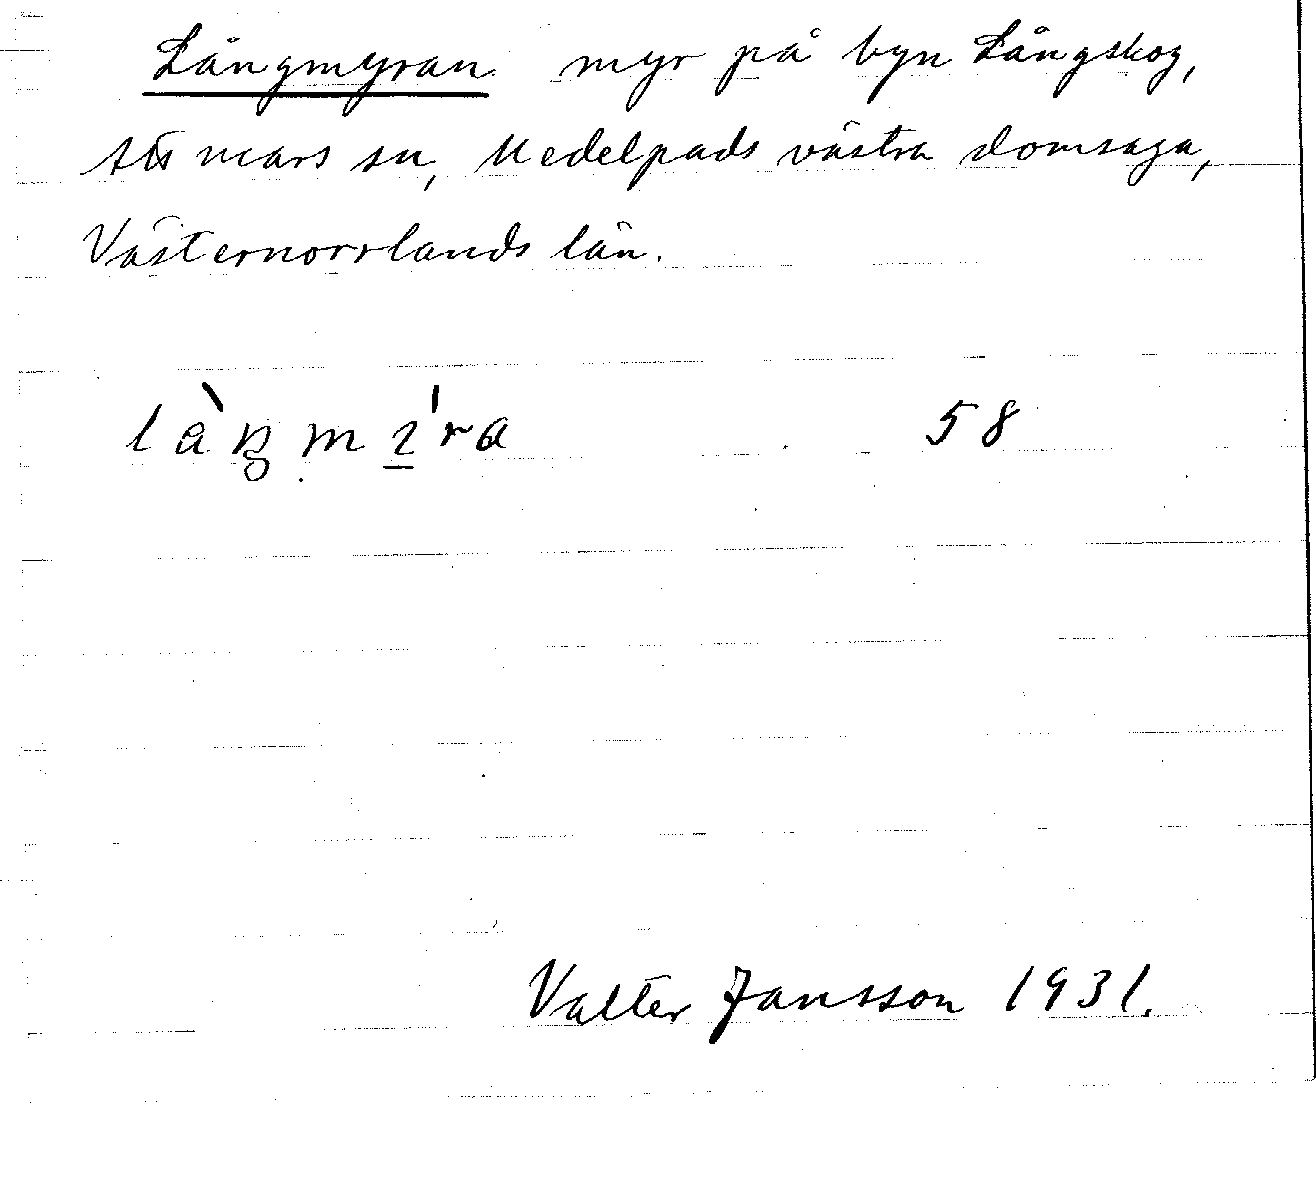 Långmyran myr på byn Långskog,
Attmars sn, Medelpads västra domsaga,
Västernorrlands län.
58
Valter Jansson 1931.